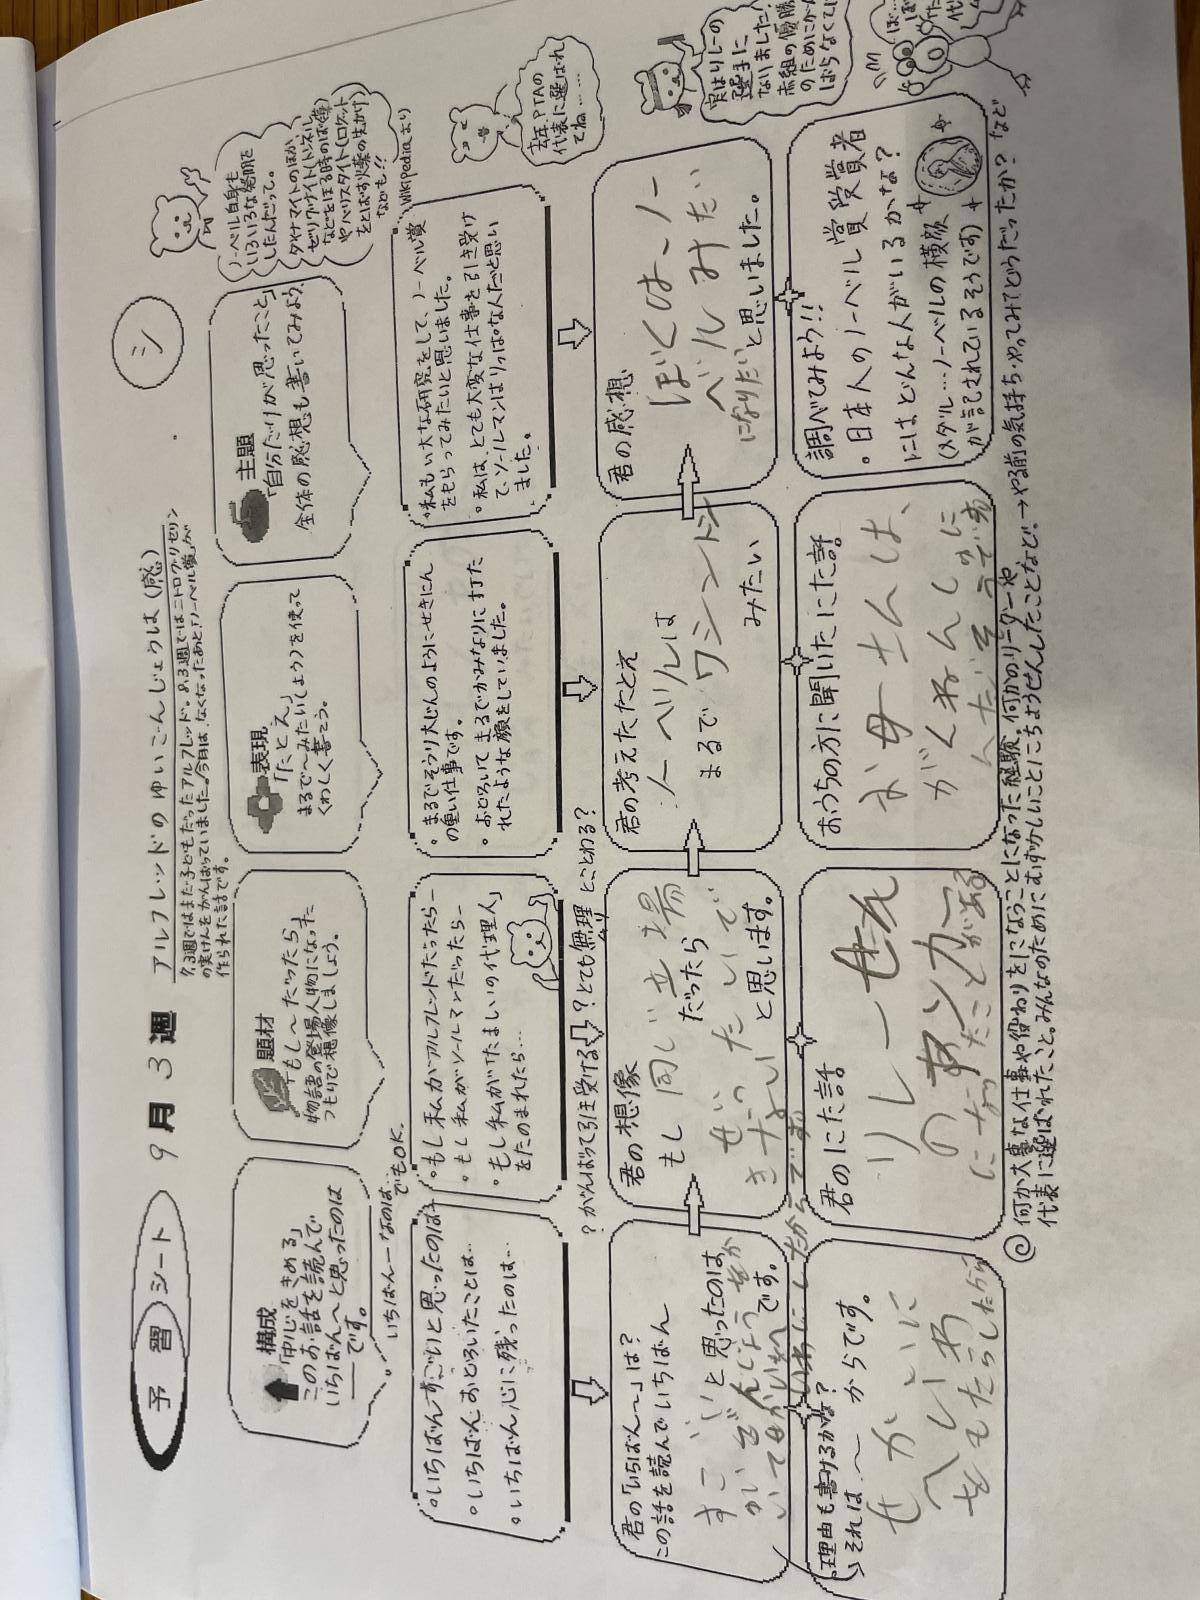 予習シート 9月3週 アルフレッドのゆいごんじょうは(感) シ
7.3週ではまだ子どもだったアルフレッド。8.3週ではニトログリセリン
の実けんをがんばっていました。今月は、なくなったあと、「ノーベル賞」が
作られた話です。
構成
「中心をきめる」
このお話を読んで
いちばん〜と思ったのは
です。
いちばん〜なのは…
でもOK.
題材
「もし〜だったら」
物語の登場人物になった
つもりで想像しましょう。
表現
「たとえ」
まるで〜みたい(しょう)を使って
くわしく書こう。
主題
「自分だけが思ったこと」
全体の感想も書いてみよう
ノーベル自身も
いろいろな発明を
したんだって。
ダイナマイトのほか、
などをほる時のばく薬)
やバリスタイト(ロケット
をとばす火薬の生かけ)
なども!!
Wikipediaより
・いちばんすごいと思ったのは
・いちばんおどろいたことは…
・いちばん心に残ったのは…
・もし私がアルフレッドだったら―
・もし私がソールマンだったら―
・もし私がけたましいの代理人
をたのまれたら…
・まるでそうり大じんのようにせきにん
の重い仕事です。
・おどろいてまるでかみなりに打た
れたような顔をしていました。
・私もい 大な研究をして、ノーベル賞
をもらってみたいと思いました。
・私は、とても大変な仕事を引き受け
て、ソールマンはりっぱな人だと思い
ました。
去年、PTAの
代表に選ばれ
てね……
?がんばって引き受ける?とても無理 とことわる?
君の「いちばん〜」は?
この話を読んでいちばん
すごい と思ったのは
です。
君の想像
もし同じ立場
だったら
ぜったいいで
きないい と思います。
君の考えたたとえ
ノーベルは
まるでワシントン
みたい
君の感想
ぼくは、ノー
ベルみたい
になりたい と思いました。
実はリレーの
選手に
なりました!
赤組の優勝
のためにがん
ばらなくては
理由も書けるかな?
それは、〜からです。
せかいに
へいわ
をもたらしたから
君のにた話
リレーせん
のアンカー
になったことがある
おうちの方に聞いたにた話
お母さんは、
調べてみよう!!
・日本人のノーベル賞受賞者
にはどんな人がいるかな?
(メダル…ノーベルの横顔
が記されているそうです)
◎何か大事な仕事や役わりをにこなうことになった経験。何かのリーダーや
代表に選ばれたこと。みんなのためにむずかしいことにちょうせんしたことなど。→やる前の気持ち・やってみてどうだったか? など